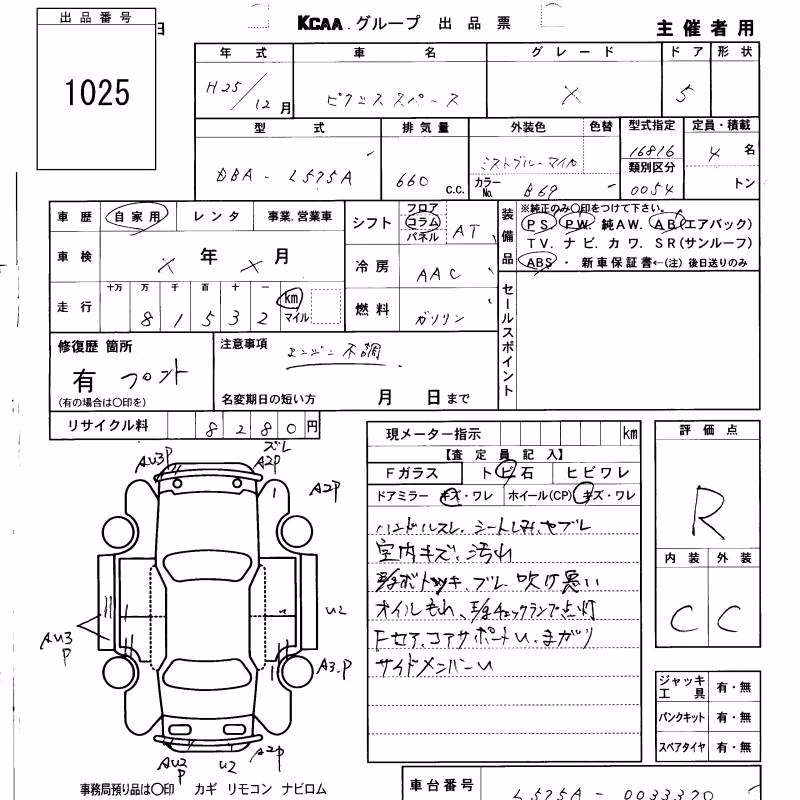 出品番号
1025
日
KCAA グループ 出品票
主催者用
年式 車名 グレード ドア 形状
H25/12月 ピクシススペース X 5
型式 排気量 外装色 色替 型式指定 定員・積載
DBA - L575A 660 c.c. ミストブルーマイカ 16816 4 名
カラーNo. B69 類別区分 0054 トン
車歴 自家用 レンタ 事業.営業車
シフト フロア コラム パネル AT
装備品
※純正のみ〇印をつけて下さい。
PS PW. 純AW. AB(エアバック)
TV. ナビ. カワ. SR(サンルーフ)
ABS ・ 新車保証書←(注) 後日送りのみ
車検 X 年 X 月
冷房 AAC
走行 十万 万 千 百 十 一 km マイル
8 1 5 3 2
燃料 ガソリン
セールスポイント
修復歴 箇所
有 フロント
(有の場合は〇印を)
注意事項
エンジン不調
名変期日の短い方 月 日まで
リサイクル料 8 2 8 0 円
現メーター指示 km
【査定員記入】
Fガラス トビ石 ヒビワレ
ドアミラー キズ・ワレ ホイール(CP) キズ・ワレ
ハンドルスレ、シートしみ、ヤブレ
室内キズ、汚れ
オイルもれ、
チェックランプ点灯
Fセア、コアサポートU、まがり
サイドメンバーU
評価点
R
内装 外装
C C
ズレ
AU3P
A2P
A2P
U2
AU3P
A3.P
AU2P
U2
A2P
ジャッキ工具 有・無
パンクキット 有・無
スペアタイヤ 有・無
事務局預り品は〇印 カギ リモコン ナビロム
車台番号 L575A - 0033370